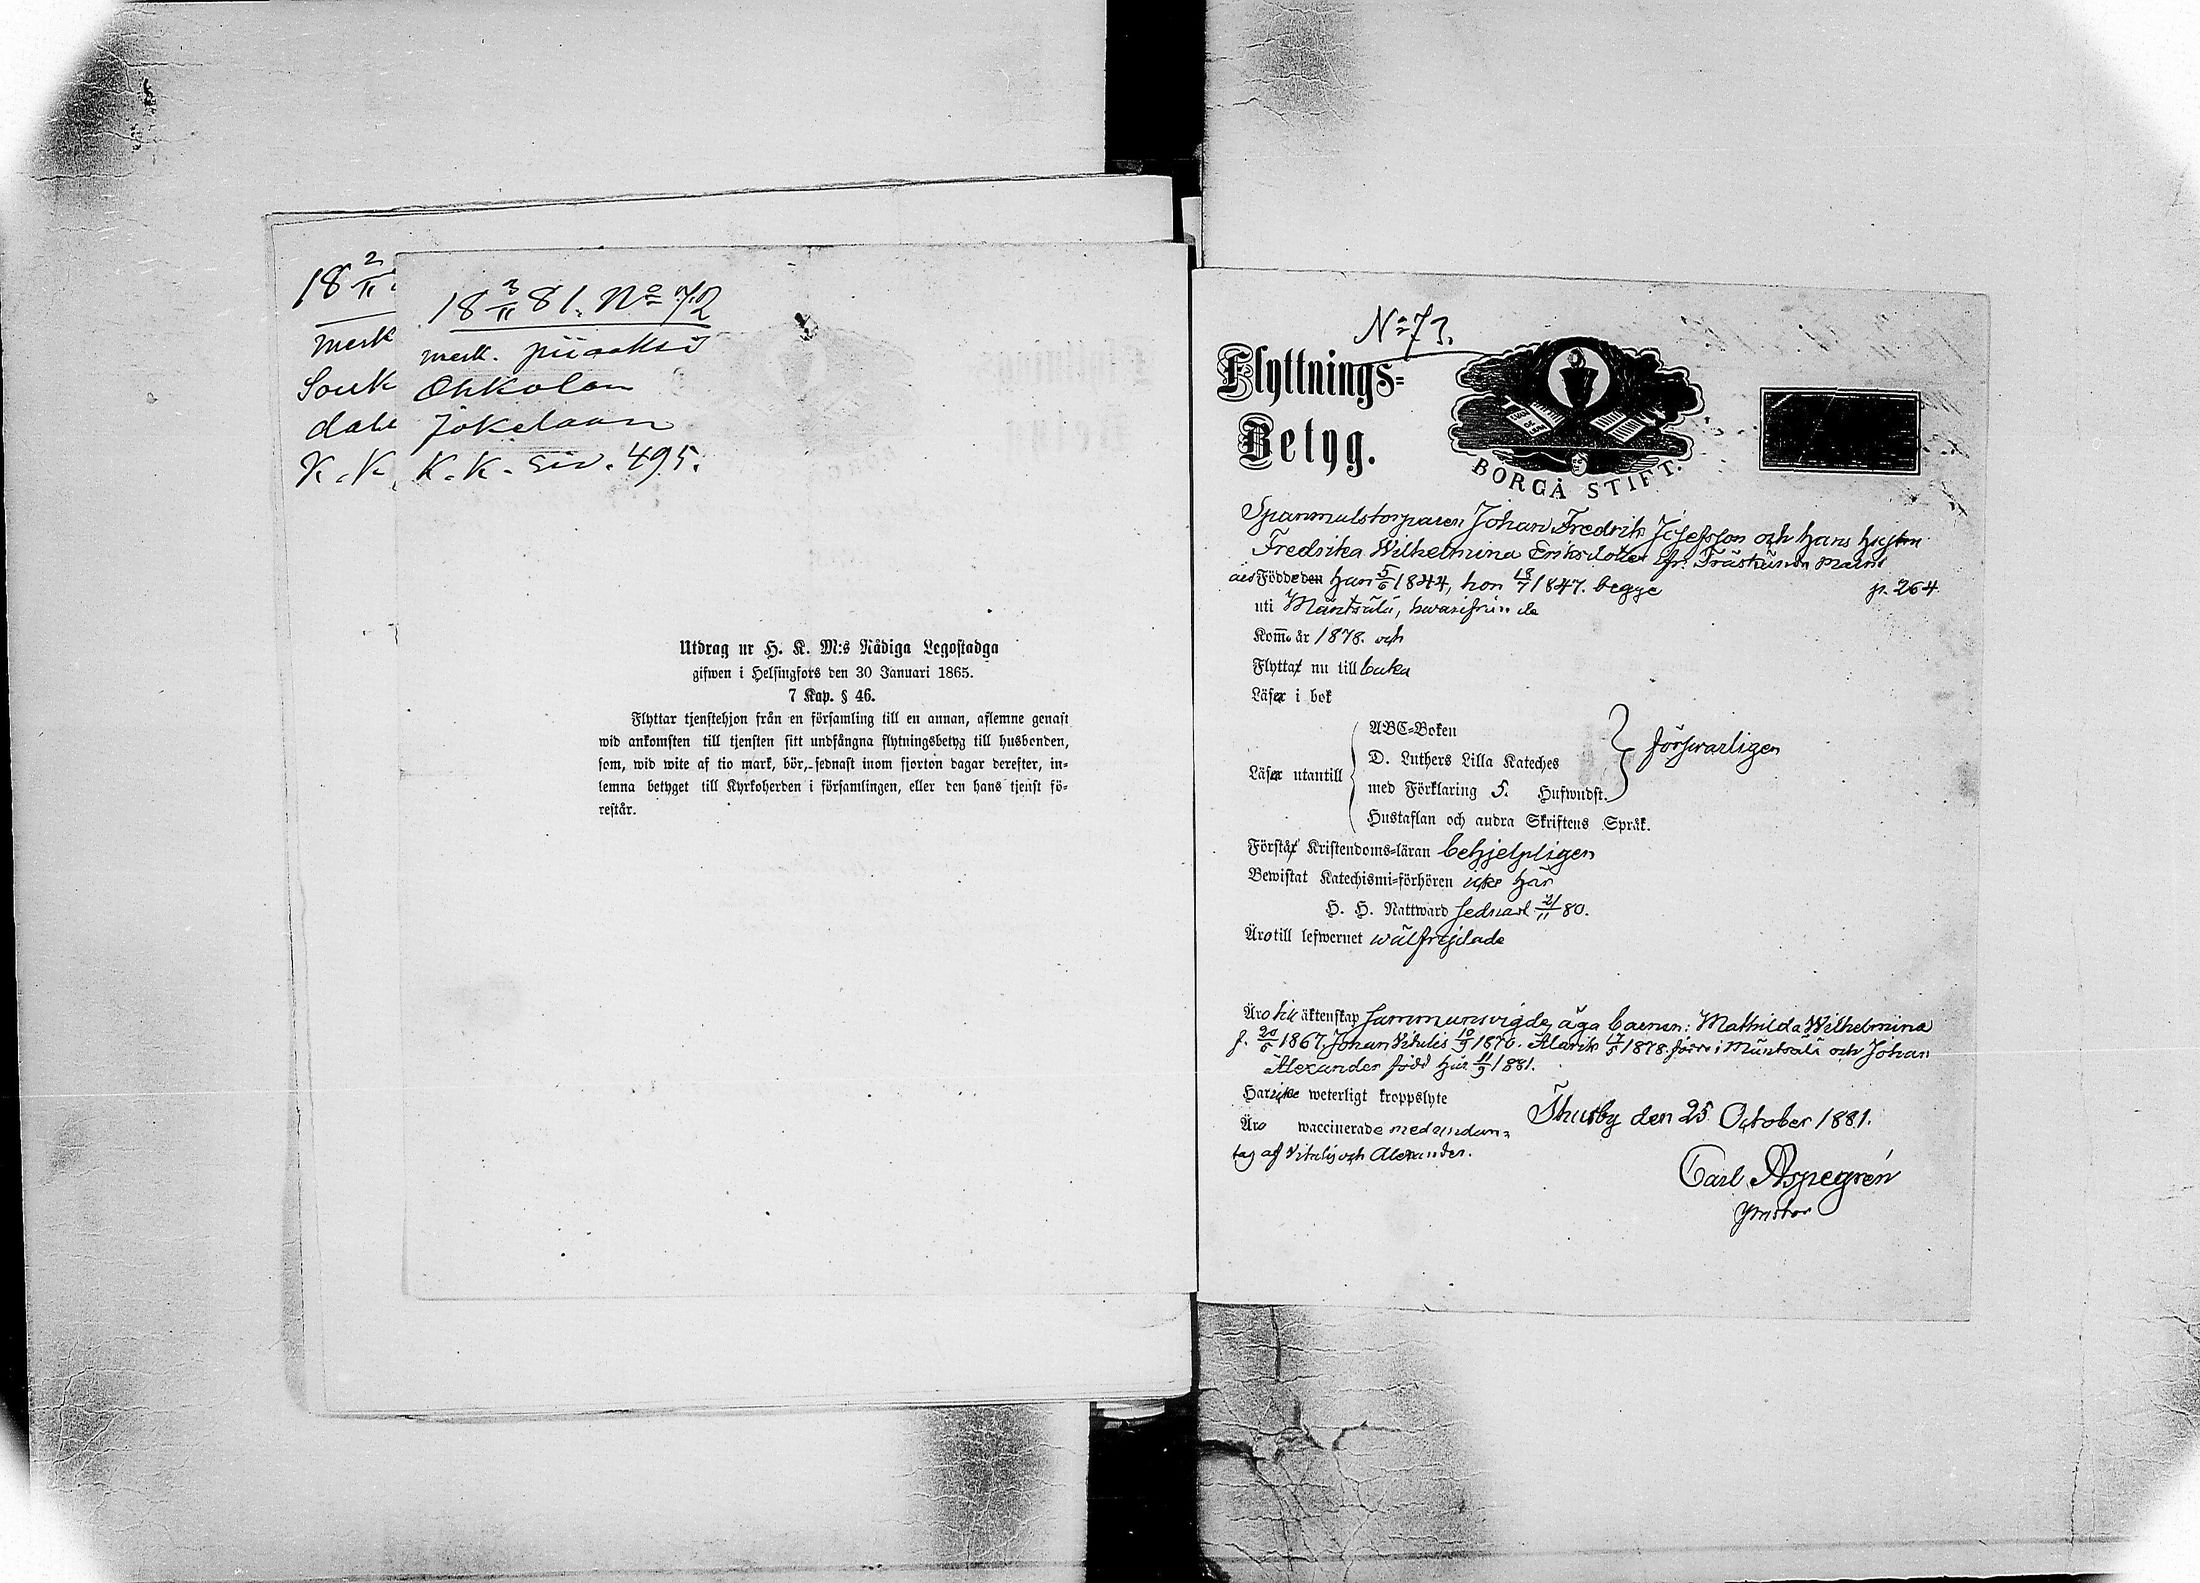 18 2/11
merk
Souk
dale
K. K.
18 3/11 81. No 72
merk. piiaaksi
Ohkolan
Jokelaan
K. K. siv. 495.
Utdrag ur H. K. M:s Nådiga Legostadga
gifwen i Helsingfors den 30 Januari 1865.
7 Kap. § 46.
Flyttar tjenstehjon från en församling till en annan, aflemne genast
wid ankomsten till tjensten sitt undfångna flyttningsbetyg till husbonden,
som, wid wite af tio mark, bör, sednast inom fjorton dagar derefter, in-
lemna betyget till Kyrkoherden i församlingen, eller den hans tjenst fö-
restår.
No 73.
Flyttnings-
Betyg.
BORGÅ STIFT.
Spanmalstorparen Johan Fredrik Josefsson och hans hustru
Fredrika Wilhelmina Eriksdotter fr. Träskända
äro Född den han 5/6 1844, hon 18/7 1847. begge p. 264
uti Mäntsälä, hwarifrån de
Komo år 1878. och
Flyttar nu till baka
Läser i bok
ABC-Boken
D. Luthers Lilla Kateches
Läser utantill
med Förklaring 5. Hufwudst.
försvarligen
Hustaflan och andra Skriftens Språk.
Förstår Kristendoms-läran behjelpligen
Bewistat Katechismi-förhören icke här
H. H. Nattward sednast 21/11 80.
Äro till lefwernet wälfrejdade
Äro till äktenskap sammanvigde, äga barnen: Mathilda Wilhelmina
f. 20/5 1867. Johan Vitalis 10/9 1870. Alarik 17/5 1878. förre i Mäntsälä och Johan
Alexander född här 11/9 1881.
Har icke weterligt kroppslyte
Äro waccinerade med undan-
tag af Vitalis och Alexander.
Thusby den 25 October 1881.
Carl Aspegrén